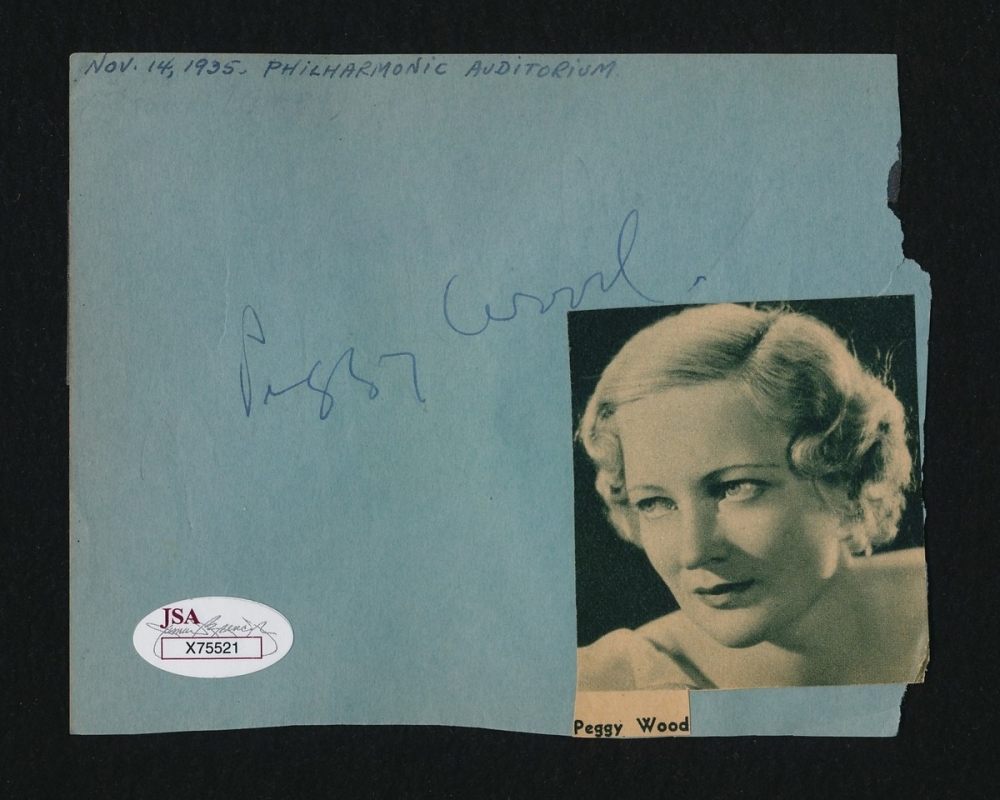 NOV. 14, 1935. PHILHARMONIC AUDITORIUM
Peggy Wood.
JSA
X75521
Peggy Wood